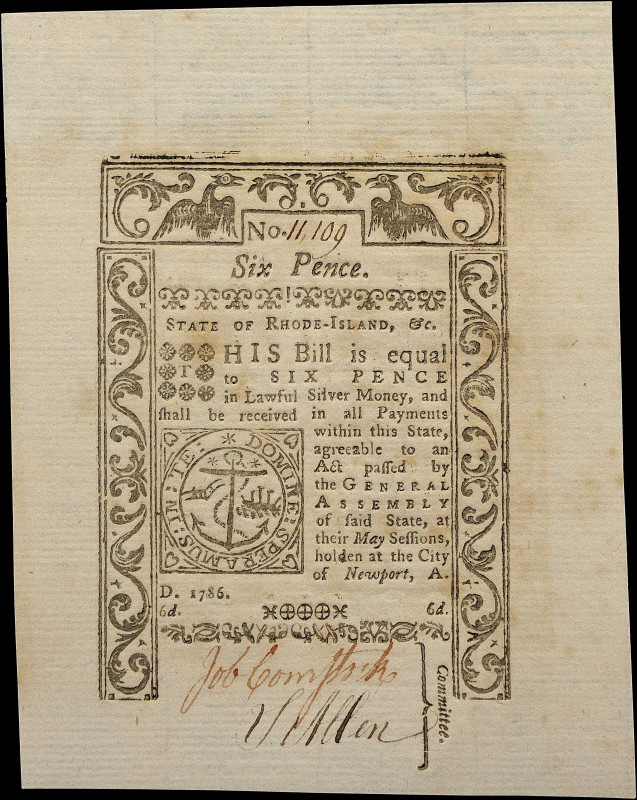 No. 11,109
Six Pence.
STATE OF RHODE-ISLAND, &c.
THIS Bill is equal
to SIX PENCE
in Lawful Silver Money, and
ſhall be received in all Payments
within this State,
agreeable to an
Act paſſed by
the GENERAL
ASSEMBLY
of ſaid State, at
their May Seſſions,
holden at the City
of Newport, A.
D. 1786.
IN : TE : DOMINE : SPERAMUS :
6d. 6d.
Job Comſtock
Committee.